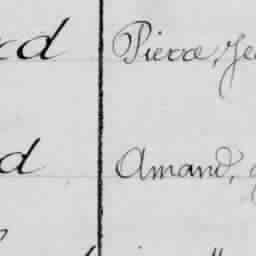 rd Pierre, Je
d Amand,